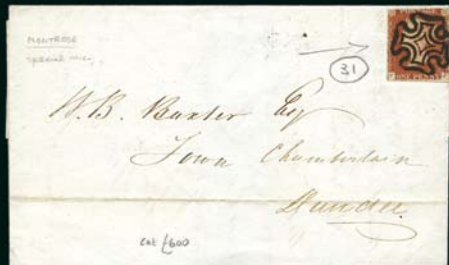 MONTROSE
special m.c.
31
ONE PENNY
W. B. Baxter Esq
Town Chamberlain
Dundee
cat £600